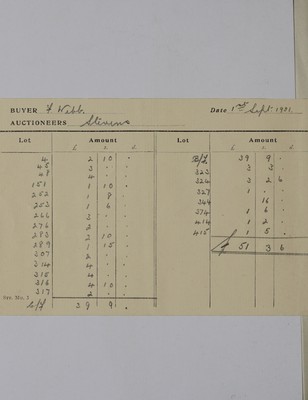 BUYER F. Webb. Date 1st Sept. 1921.
AUCTIONEERS Stevens
Lot Amount
£ s. d.
4 2 10 .
45 3 . .
48 4 . .
151 1 10 .
252 1 9 .
253 1 6 .
266 3 . .
276 2 . .
283 2 10 .
289 1 15 .
307 2 . .
314 4 . .
315 4 . .
316 4 10 .
317 2 . .
C/f 39 9 .
Lot Amount
£ s. d.
B/f 39 9 .
323 3 3 .
324 3 2 6
327 1 . .
349 16 .
374 1 6 .
414 1 2 .
415 1 5 .
£ 51 3 6